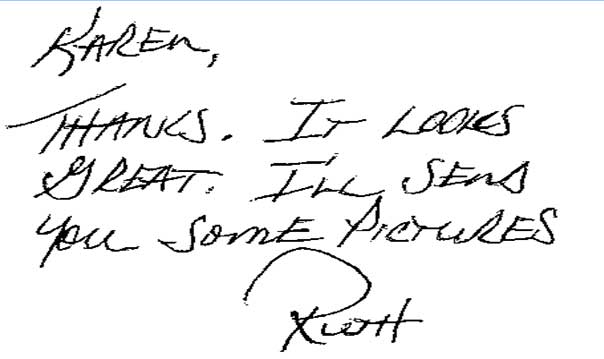 KAREN,
THANKS. IT LOOKS
GREAT. I'LL SEND
YOU SOME PICTURES
RUTH